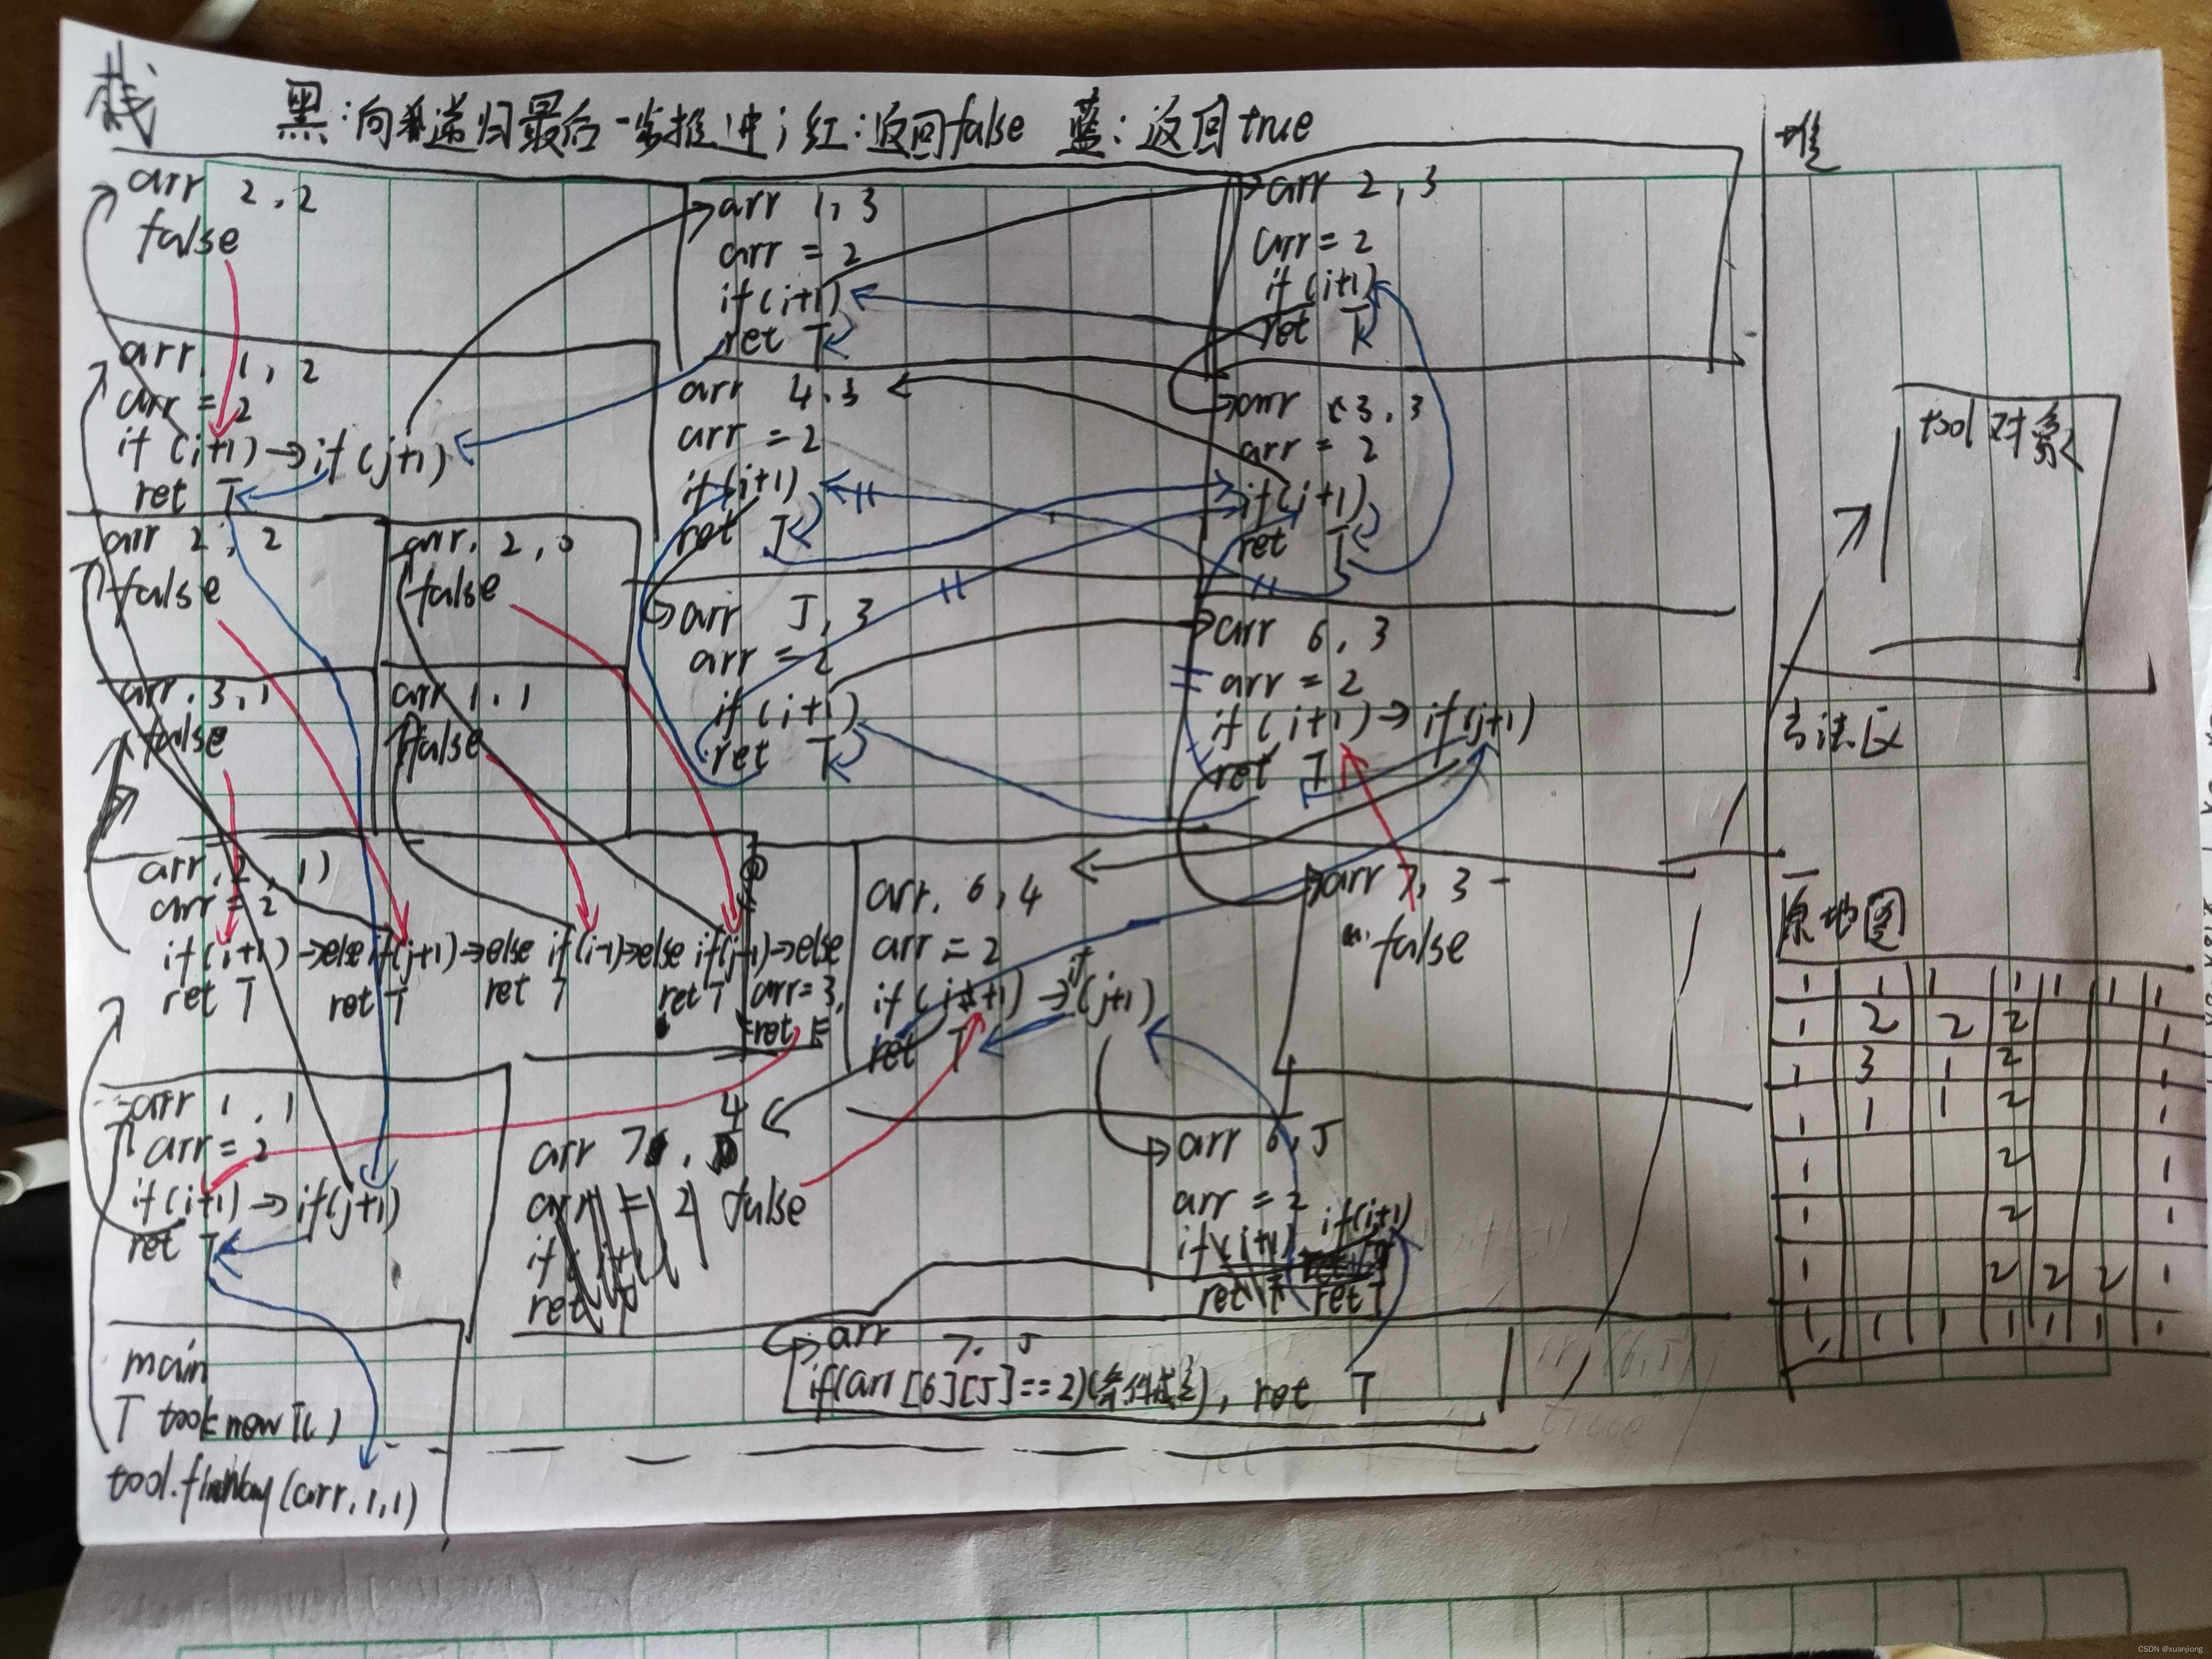 栈
黑:向递归最后一步推进;红:返回false 蓝:返回true
arr 2,2
false
arr 1,3
arr = 2
if(i+1)
ret T
arr 2,3
arr = 2
if(i+1)
ret T
arr, 1,2
arr = 2
if(i+1)→if(j+1)
ret T
arr 4,3
arr = 2
if(i+1)
ret T
arr 3,3
arr = 2
if(i+1)
ret T
arr 2,2
false
arr, 2,0
false
arr 5,3
arr = 2
if(i+1)
ret T
arr 6,3
arr = 2
if(i+1)→if(j+1)
ret T
arr,3,1
false
arr 1,1
false
arr,2,1)
arr = 2
if(i+1)→else if(j+1)→else if(i-1)→else if(j-1)→else
ret T ret T ret T ret T
arr=3,
ret F
arr, 6,4
arr = 2
if(i+1)→if(j+1)
ret T
arr 7,3
false
arr 1,1
arr = 2
if(i+1)→if(j+1)
ret T
arr 7, 4
false
arr 6,5
arr = 2
if(i+1)
ret T
arr 7,5
if(arr[6][5]==2)(条件成立), ret T
main
T tool=new T()
tool.findWay(arr,1,1)
堆
tool对象
方法区
原地图
1 1 1 1 1 1 1
1 2 2 2 1
1 3 1 2 1
1 1 1 2 1
1 2 1
1 2 1
1 2 2 2 1
1 1 1 1 1 1 1
CSDN @xuanjiong